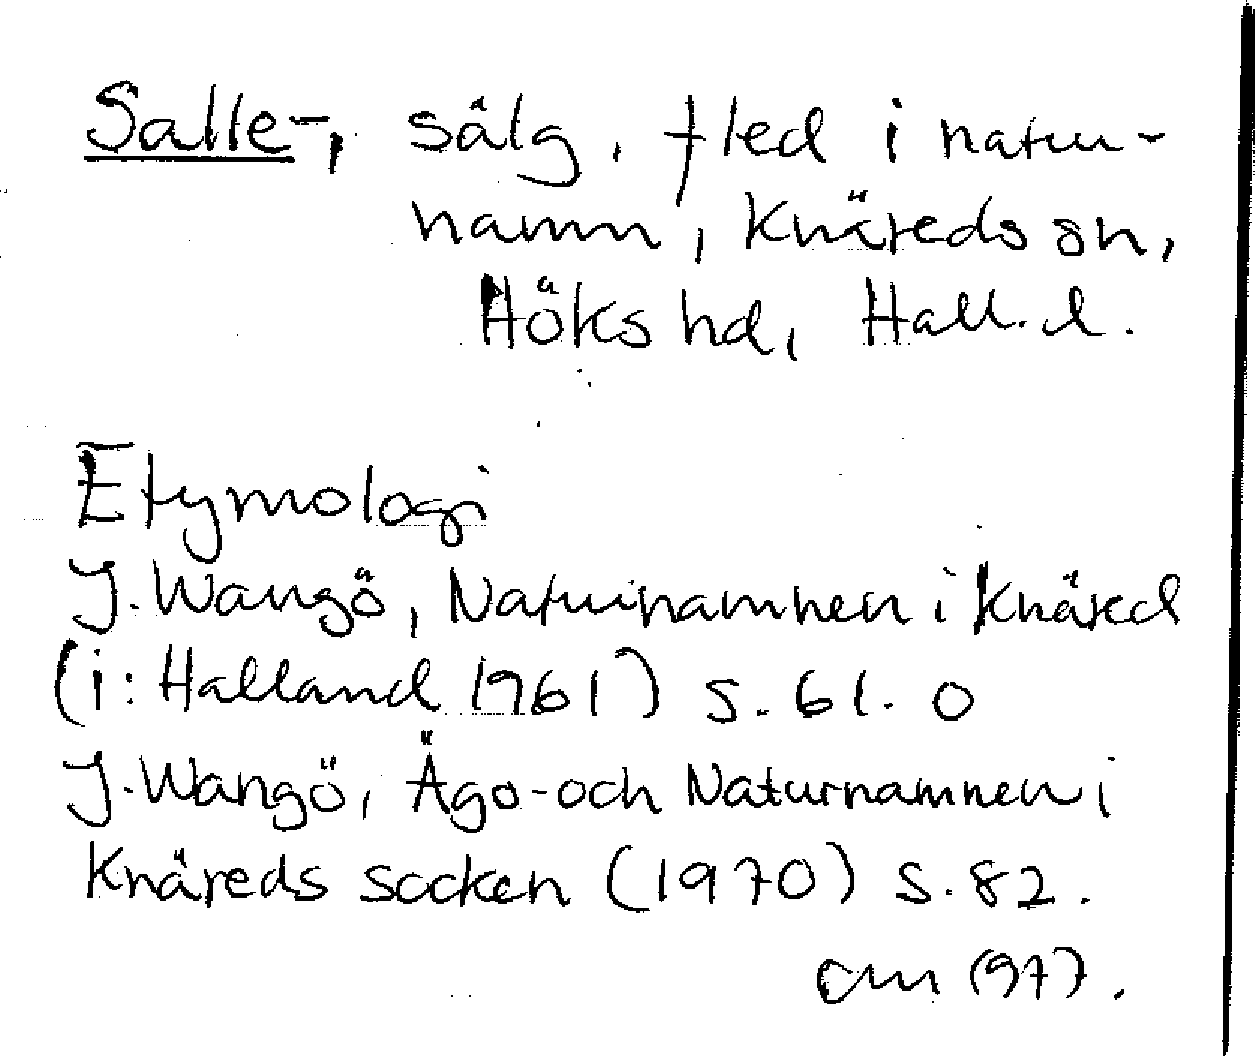 Salle-, sälg, fled i natur-
namn, Knäreds sn,
Höks hd, Hall. l.
Etymologi
J. Wangö, Naturnamnen i Knäred
(i: Halland 1961) s. 61. o
J. Wangö, Ägo- och Naturnamnen i
Knäreds socken (1970) s. 82.
(97).